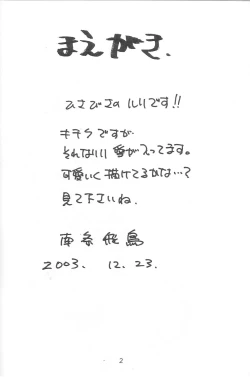 まえがき.
ひさびさの ルリです!!
キチクですが
それなりに愛が入ってます。
可愛いく描けてるかな…?
見て下さいね.
飛鳥
2003. 12. 23.
2